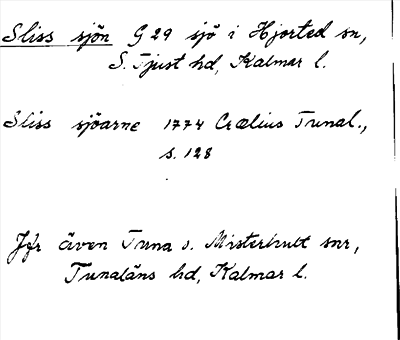 Sliss sjön G 29 sjö i Hjorted sn,
S. Tjust hd, Kalmar l.
Sliss sjöarne 1774 Crælius Tunal.,
s. 128
Jfr även Tuna o. Misterhult snr,
Tunaläns hd, Kalmar l.